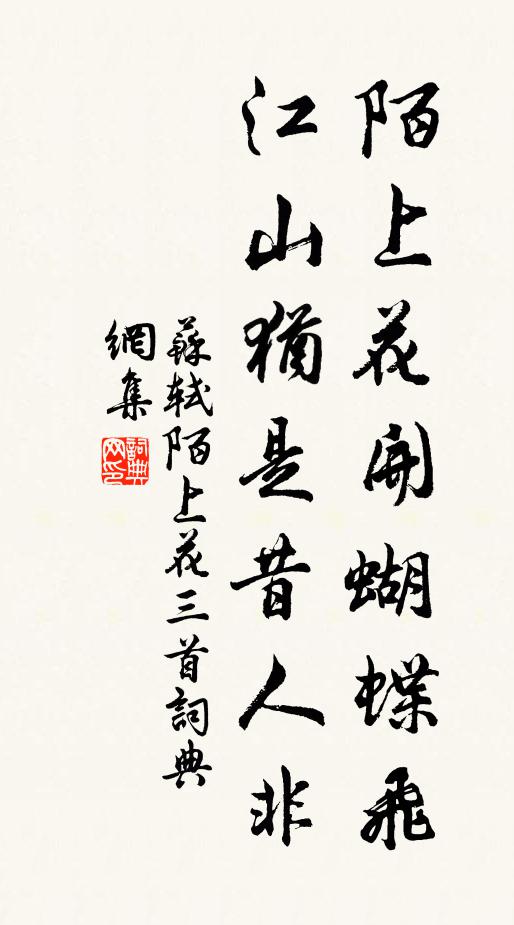 陌上花開蝴蝶飛
江山猶是昔人非
蘇軾陌上花三首詞典
網集
詞典
网印